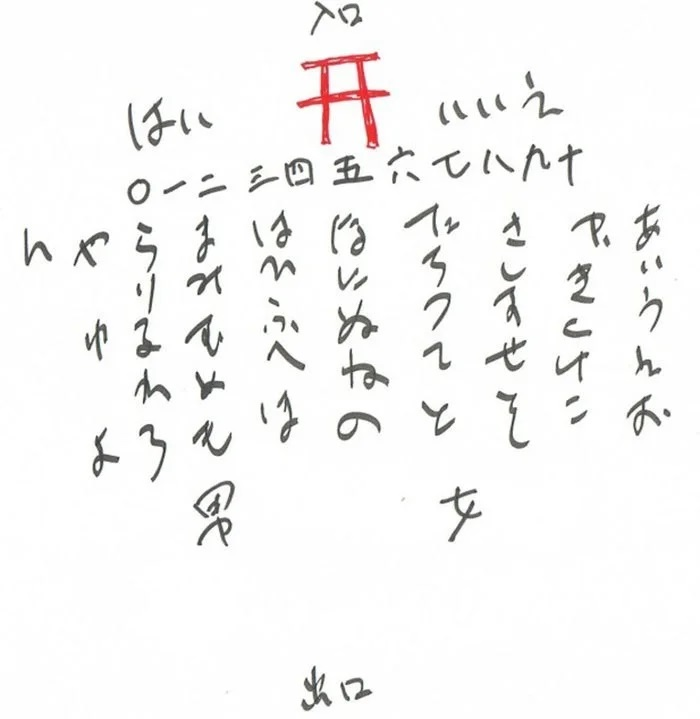 入口
はい
いいえ
〇一二三四五六七八九十
あいうえお
かきくけこ
さしすせそ
たちつてと
なにぬねの
はひふへほ
まみむめも
らりるれろ
やゆよ
ん
男
女
出口